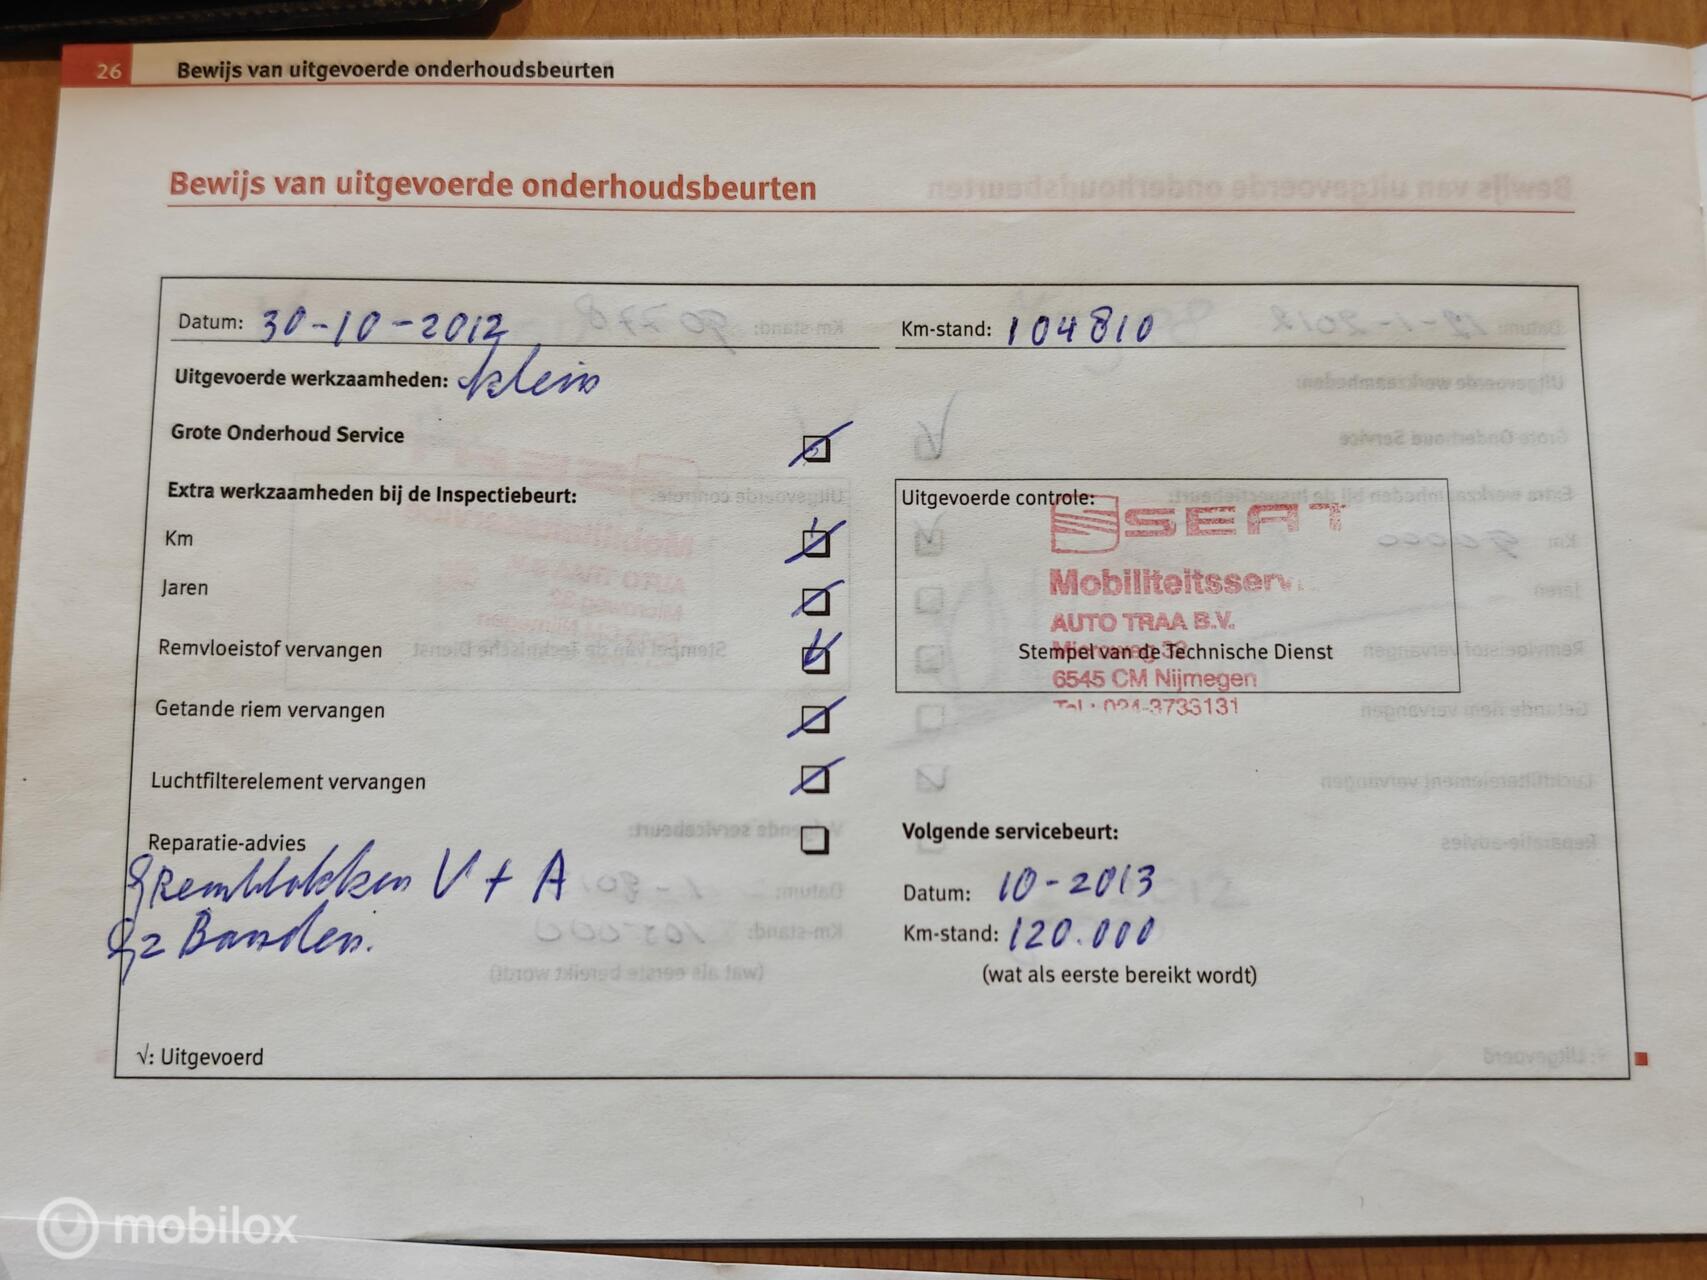 26 Bewijs van uitgevoerde onderhoudsbeurten
Bewijs van uitgevoerde onderhoudsbeurten
Datum: 30-10-2012 Km-stand: 104810
Uitgevoerde werkzaamheden: klein
Grote Onderhoud Service
Extra werkzaamheden bij de Inspectiebeurt:
Km
Jaren
Remvloeistof vervangen
Getande riem vervangen
Luchtfilterelement vervangen
Reparatie-advies
Remblokken V + A
2 Banden.
√: Uitgevoerd
Uitgevoerde controle:
SEAT
Mobiliteitsserv
AUTO TRAA B.V.
Stempel van de Technische Dienst
6545 CM Nijmegen
Tel.: 024-3733131
Volgende servicebeurt:
Datum: 10-2013
Km-stand: 120.000
(wat als eerste bereikt wordt)
mobilox